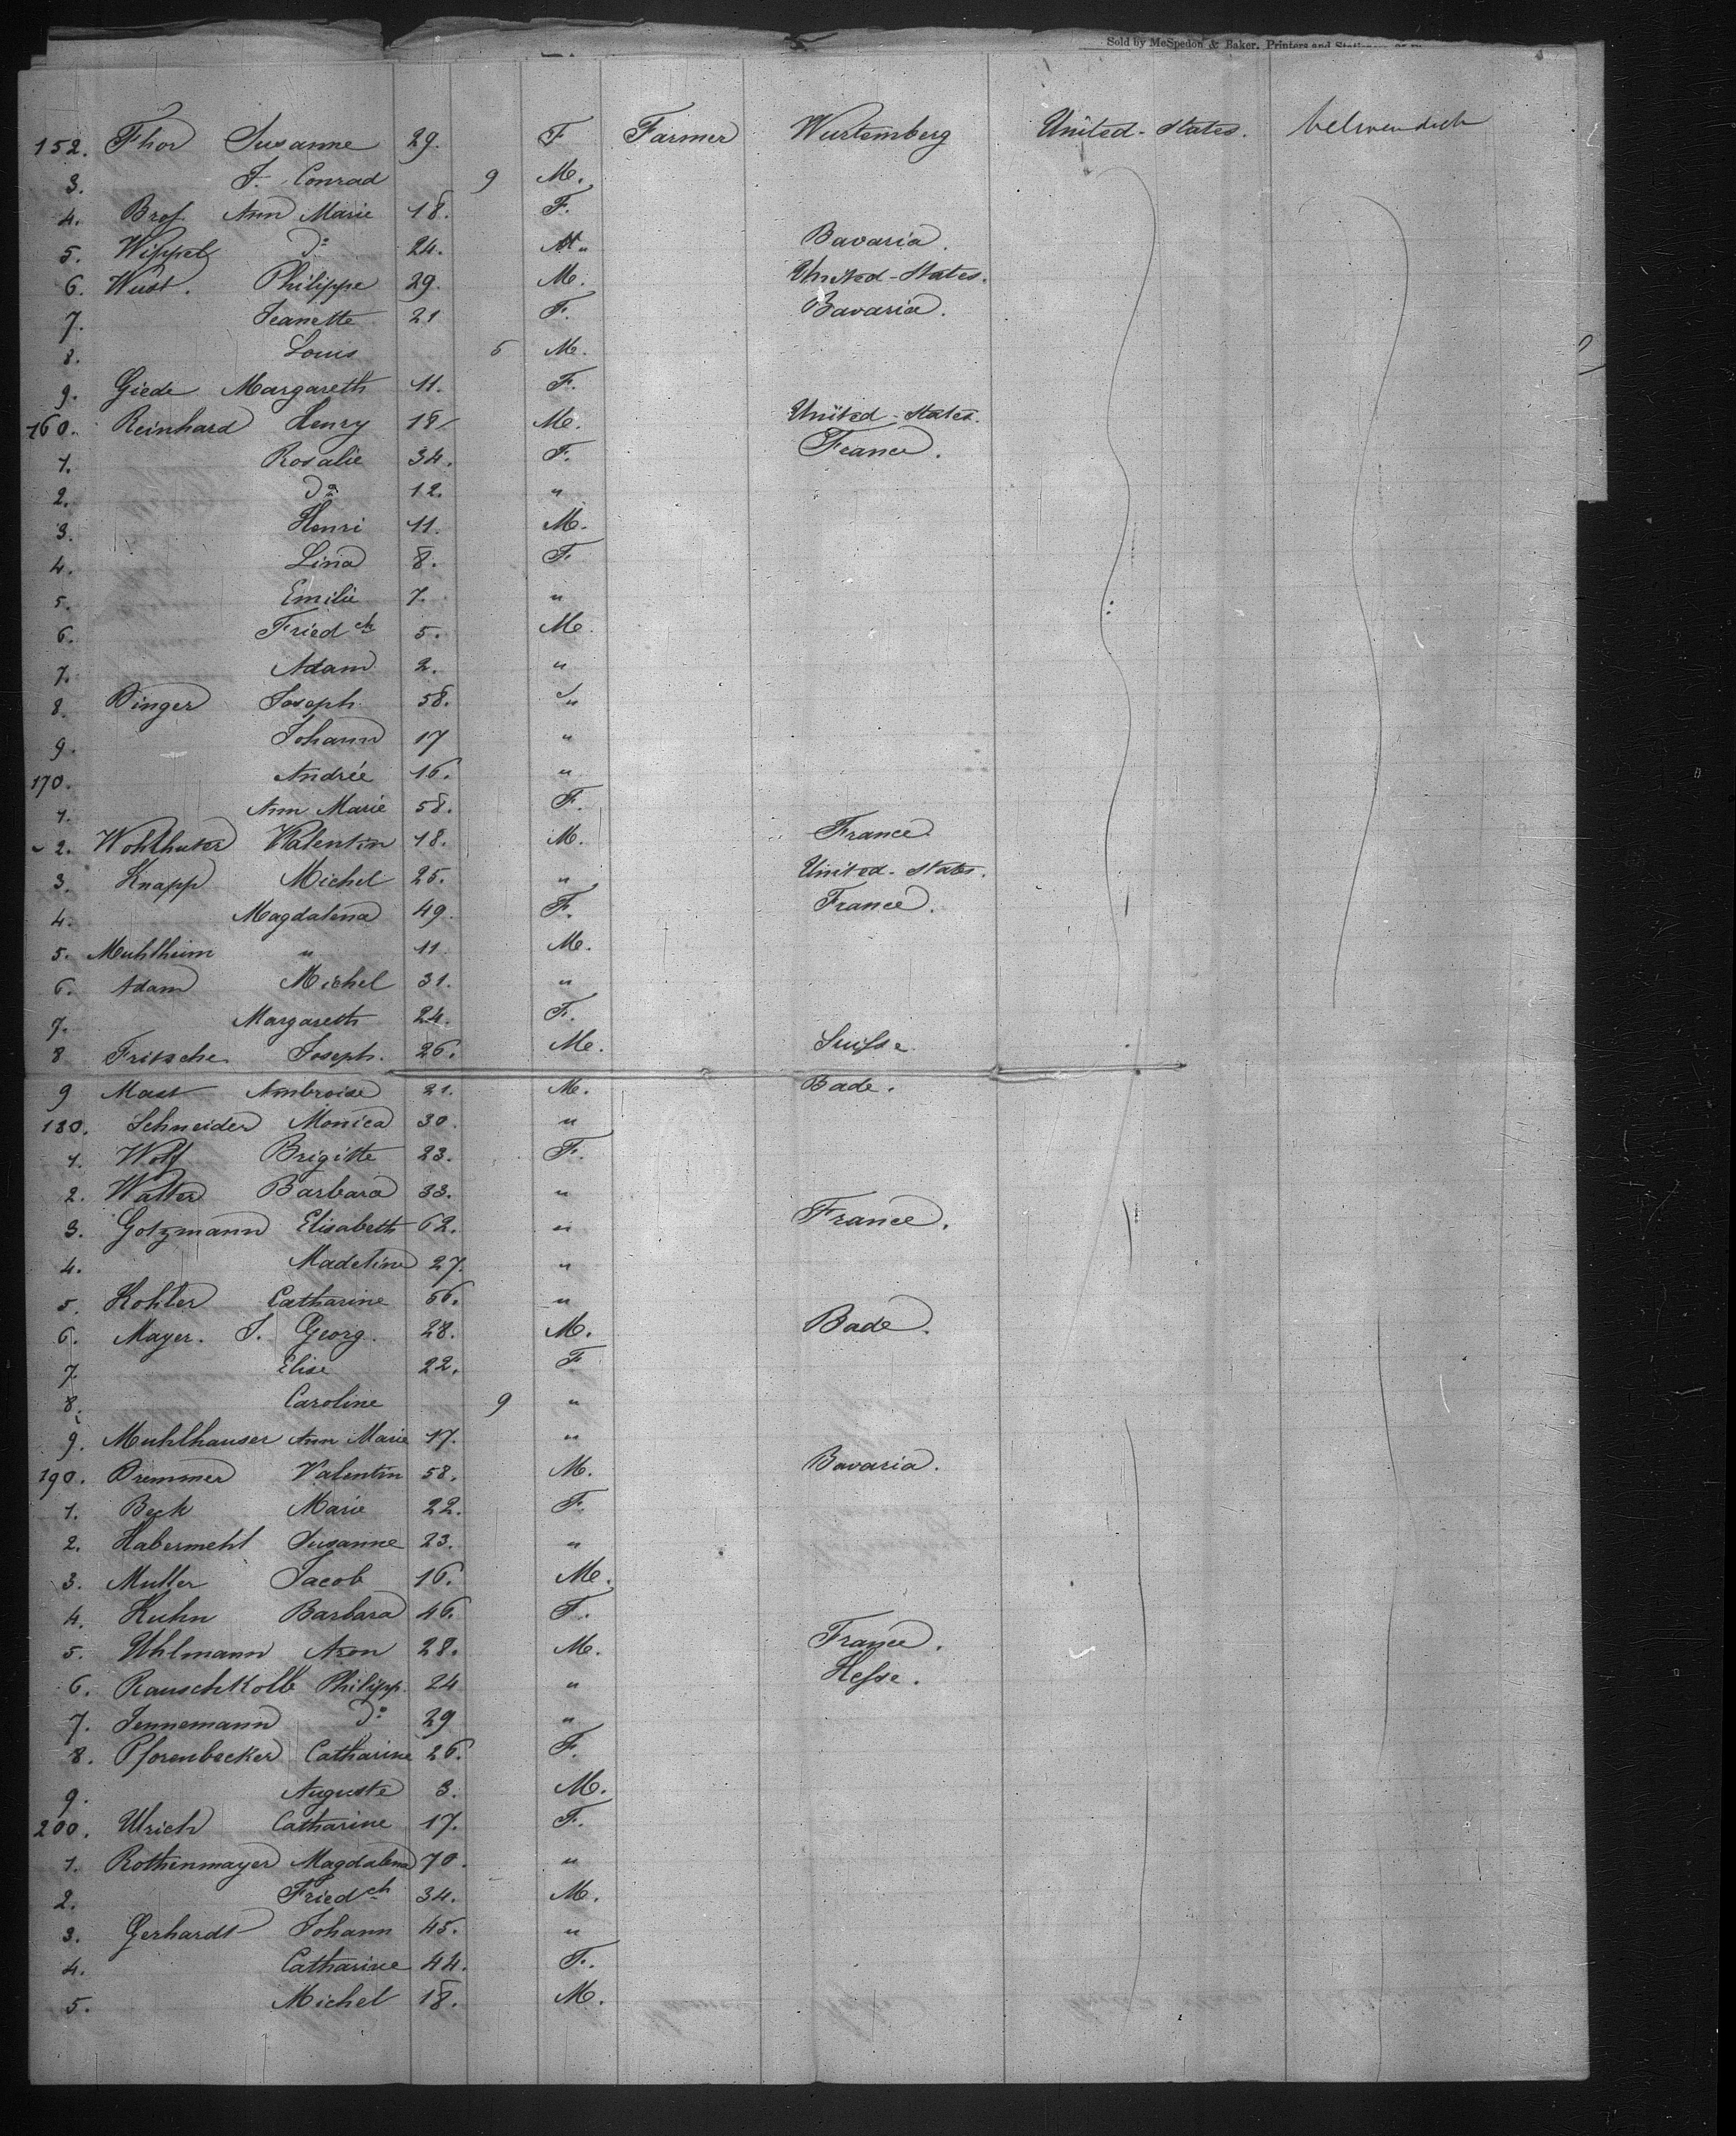 Sold by McSpedon & Baker, Printers and
152. Thor Susanne 29. F Farmer Wurtemberg United-States.
3. J. Conrad 9 M.
4. Brof Ann Marie 18. F.
5. Wippel do 24. M. Bavaria.
6. Wust. Philippe 29. M. United-States.
7. Jeanette 21 F. Bavaria.
8. Louis 6 M.
9. Giede Margareth 11. F.
160. Reinhard Henry 18 M. United-States.
1. Rosalie 34. F. France.
2. do 12. "
3. Henri 11. M.
4. Lina 8. F
5. Emilie 7. "
6. Friedch 5. M.
7. Adam 2. "
8. Dinger Joseph 58. "
9. Johann 17 "
170. Andrée 16. "
1. Ann Marie 58. F.
2. Wohlhuter Valentin 18. M. France.
3. Knapp Michel 25. " United-States.
4. Magdalena 49. F. France.
5. Muhlheim " 11. M.
6. Adam Michel 31. "
7. Margareth 24. F.
8 Fritsche Joseph. 26. M. Suisse
9 Mast Ambroise 21. M. Bade.
180. Schneider Monica 30. "
1. Wolf Brigitte 23. F.
2. Walter Barbara 33. "
3. Gotzmann Elisabeth 62. " France.
4. Madeline 27. "
5. Kohler Catharine 56. "
6. Mayer. J. Georg. 28. M. Bade.
7. Elise 22. F
8. Caroline 9 "
9. Muhlhauser Ann Marie 17. "
190. Dremmer Valentin 58. M. Bavaria.
1. Beck Marie 22. F.
2. Habermehl Susanne 23. "
3. Muller Jacob 16. M.
4. Kuhn Barbara 46. F.
5. Uhlmann Aron 28. M. France.
6. Rauschkolb Philipp. 24 " Hesse.
7. Jennemann do 29 "
8. Pforenbecker Catharine 26. F.
9. Auguste 3. M.
200. Ulrich Catharine 17. F.
1. Rothenmayer Magdalena 70. "
2. Friedch 34. M.
3. Gerhardt Johann 45. "
4. Catharine 44. F.
5. Michel 18. M.